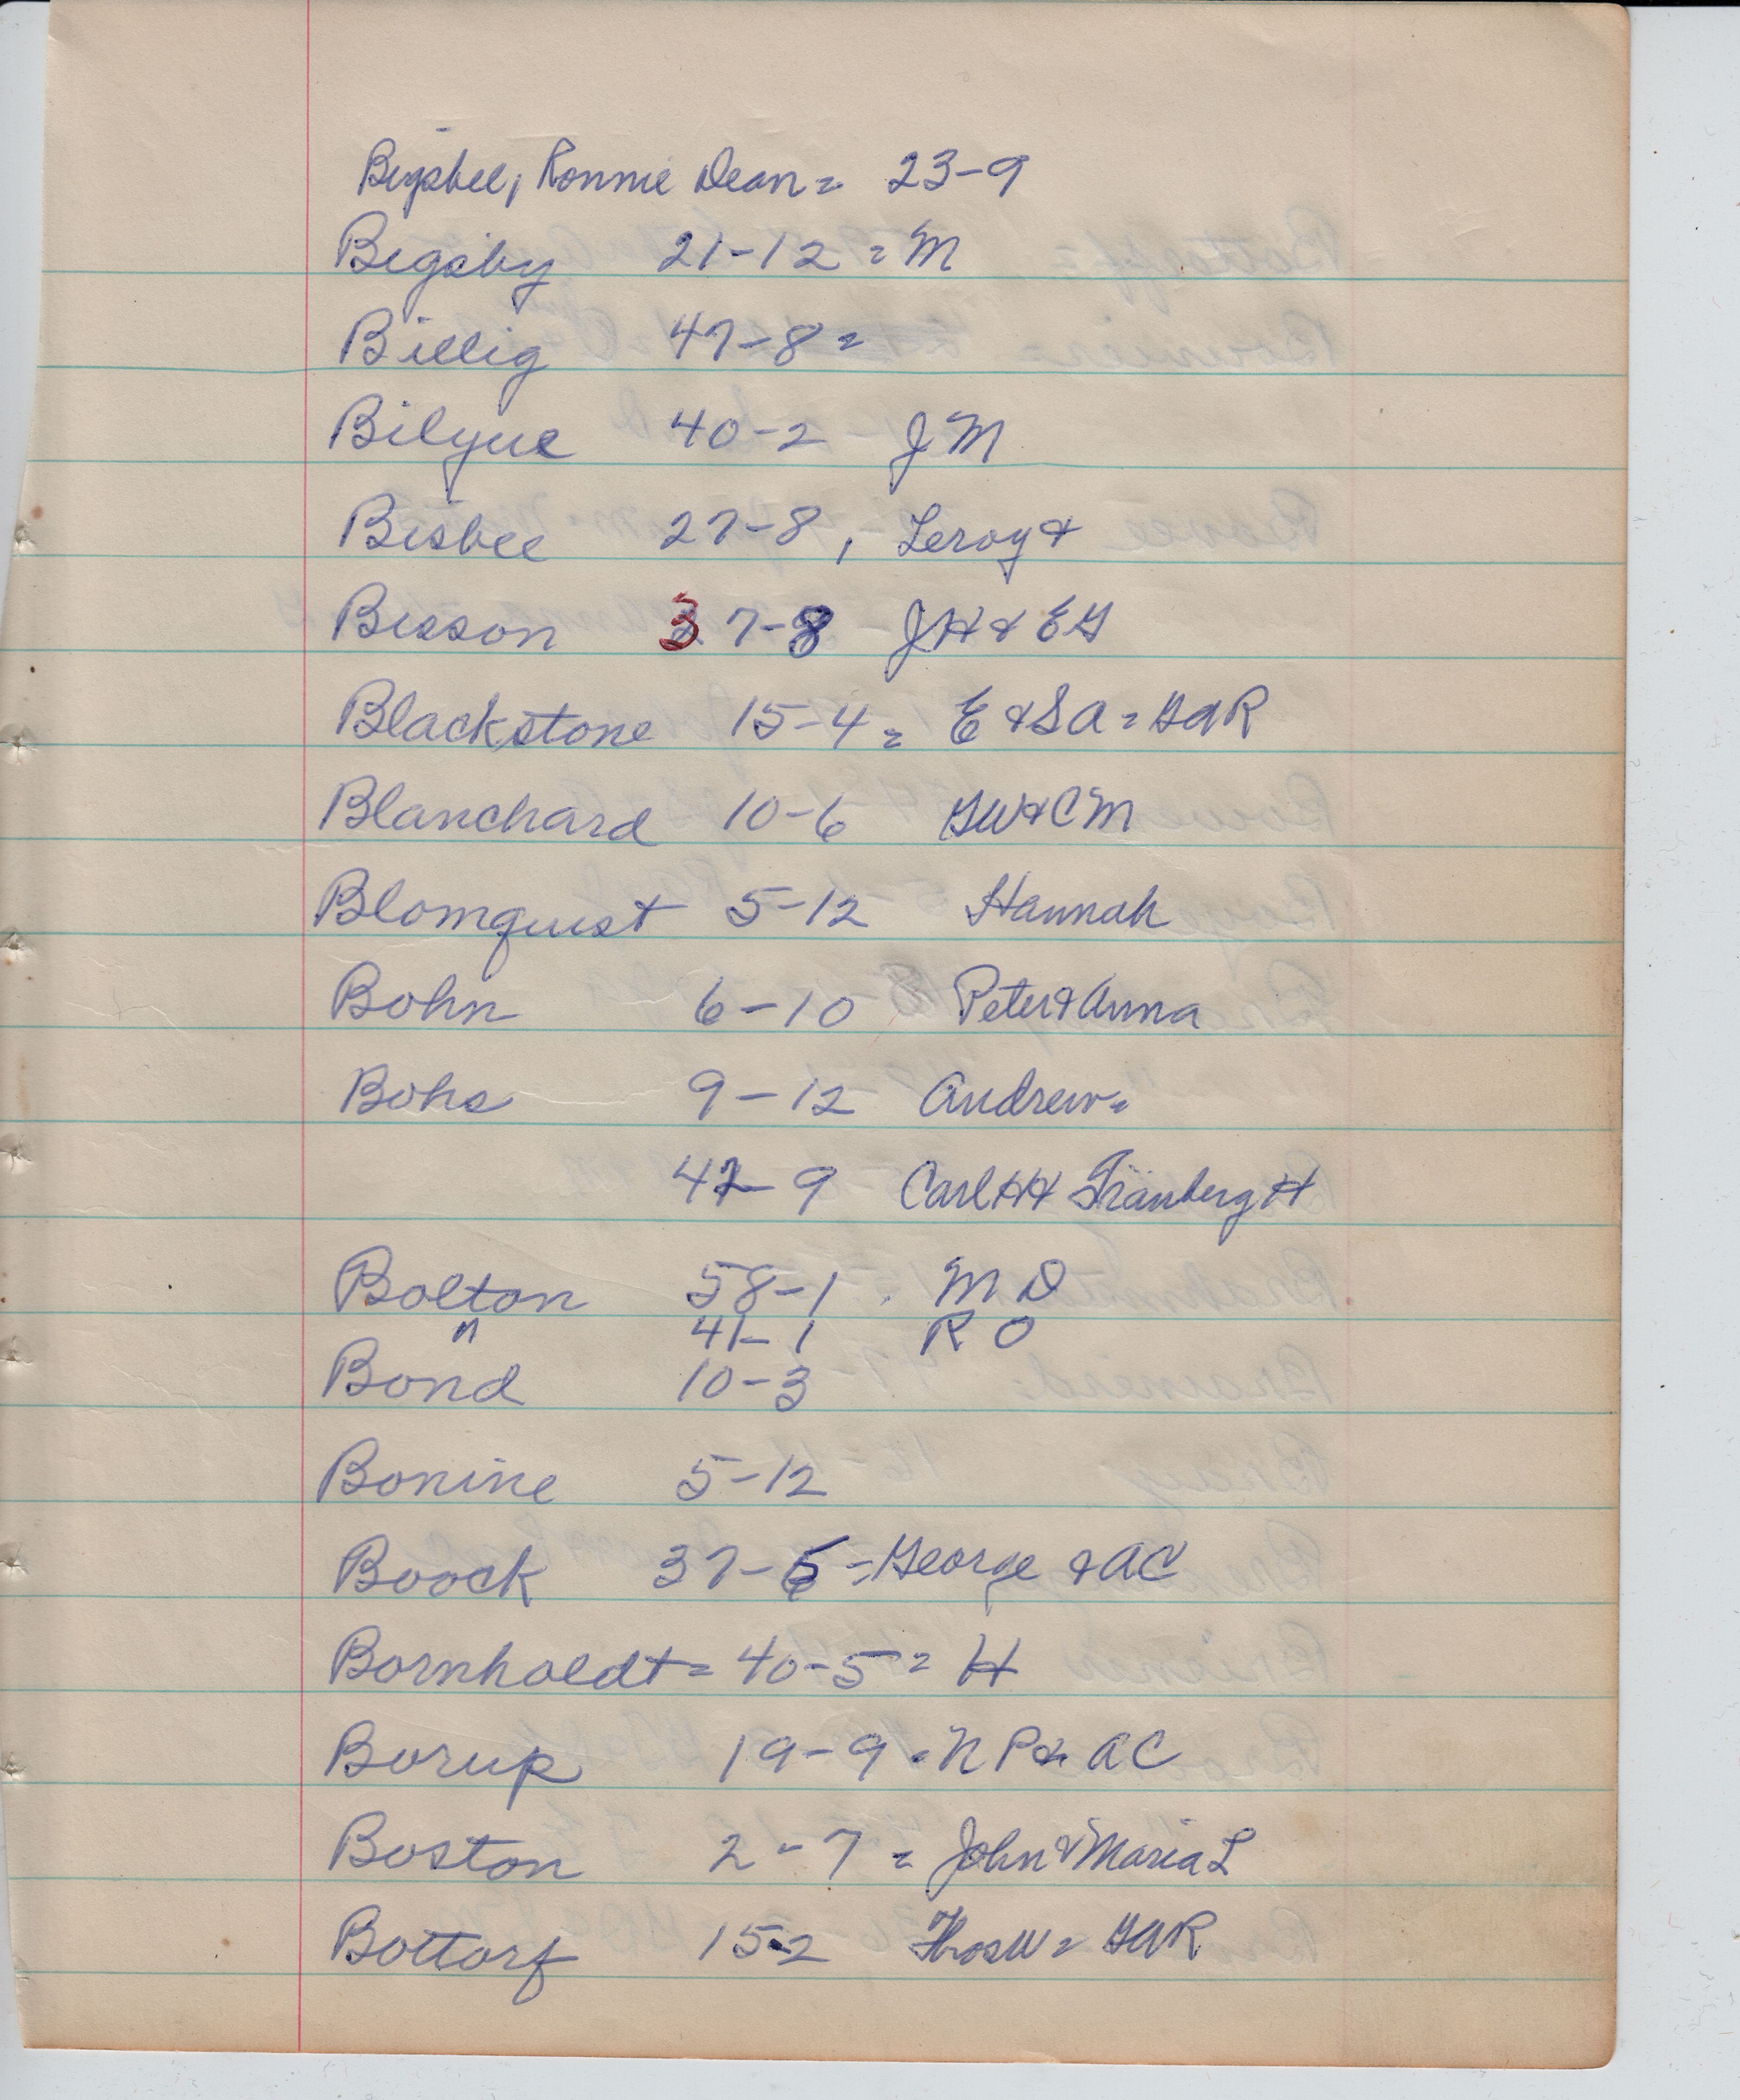 Bigsbee, Ronnie Dean = 23-9
Bigsby 21-12 = M
Billig 47-8 =
Bilyue 40-2 JM
Bisbee 27-8, Leroy &
Bisson 37-8 JH & EG
Blackstone 15-4 = E & SA = GAR
Blanchard 10-6 GW & CM
Blomquist 5-12 Hannah
Bohn 6-10 Peter & Anna
Bohs 9-12 Andrew =
42-9 Carl H &  H
Bolton 58-1 . M D
" 41-1 R O
Bond 10-3
Bonine 5-12
Boock 37- = George & AC
Bornholdt = 40-5 = H
Borup 19-9 = NP & AC
Boston 2-7 = John & Maria L
Bottorf 15-2 Thos W = GAR